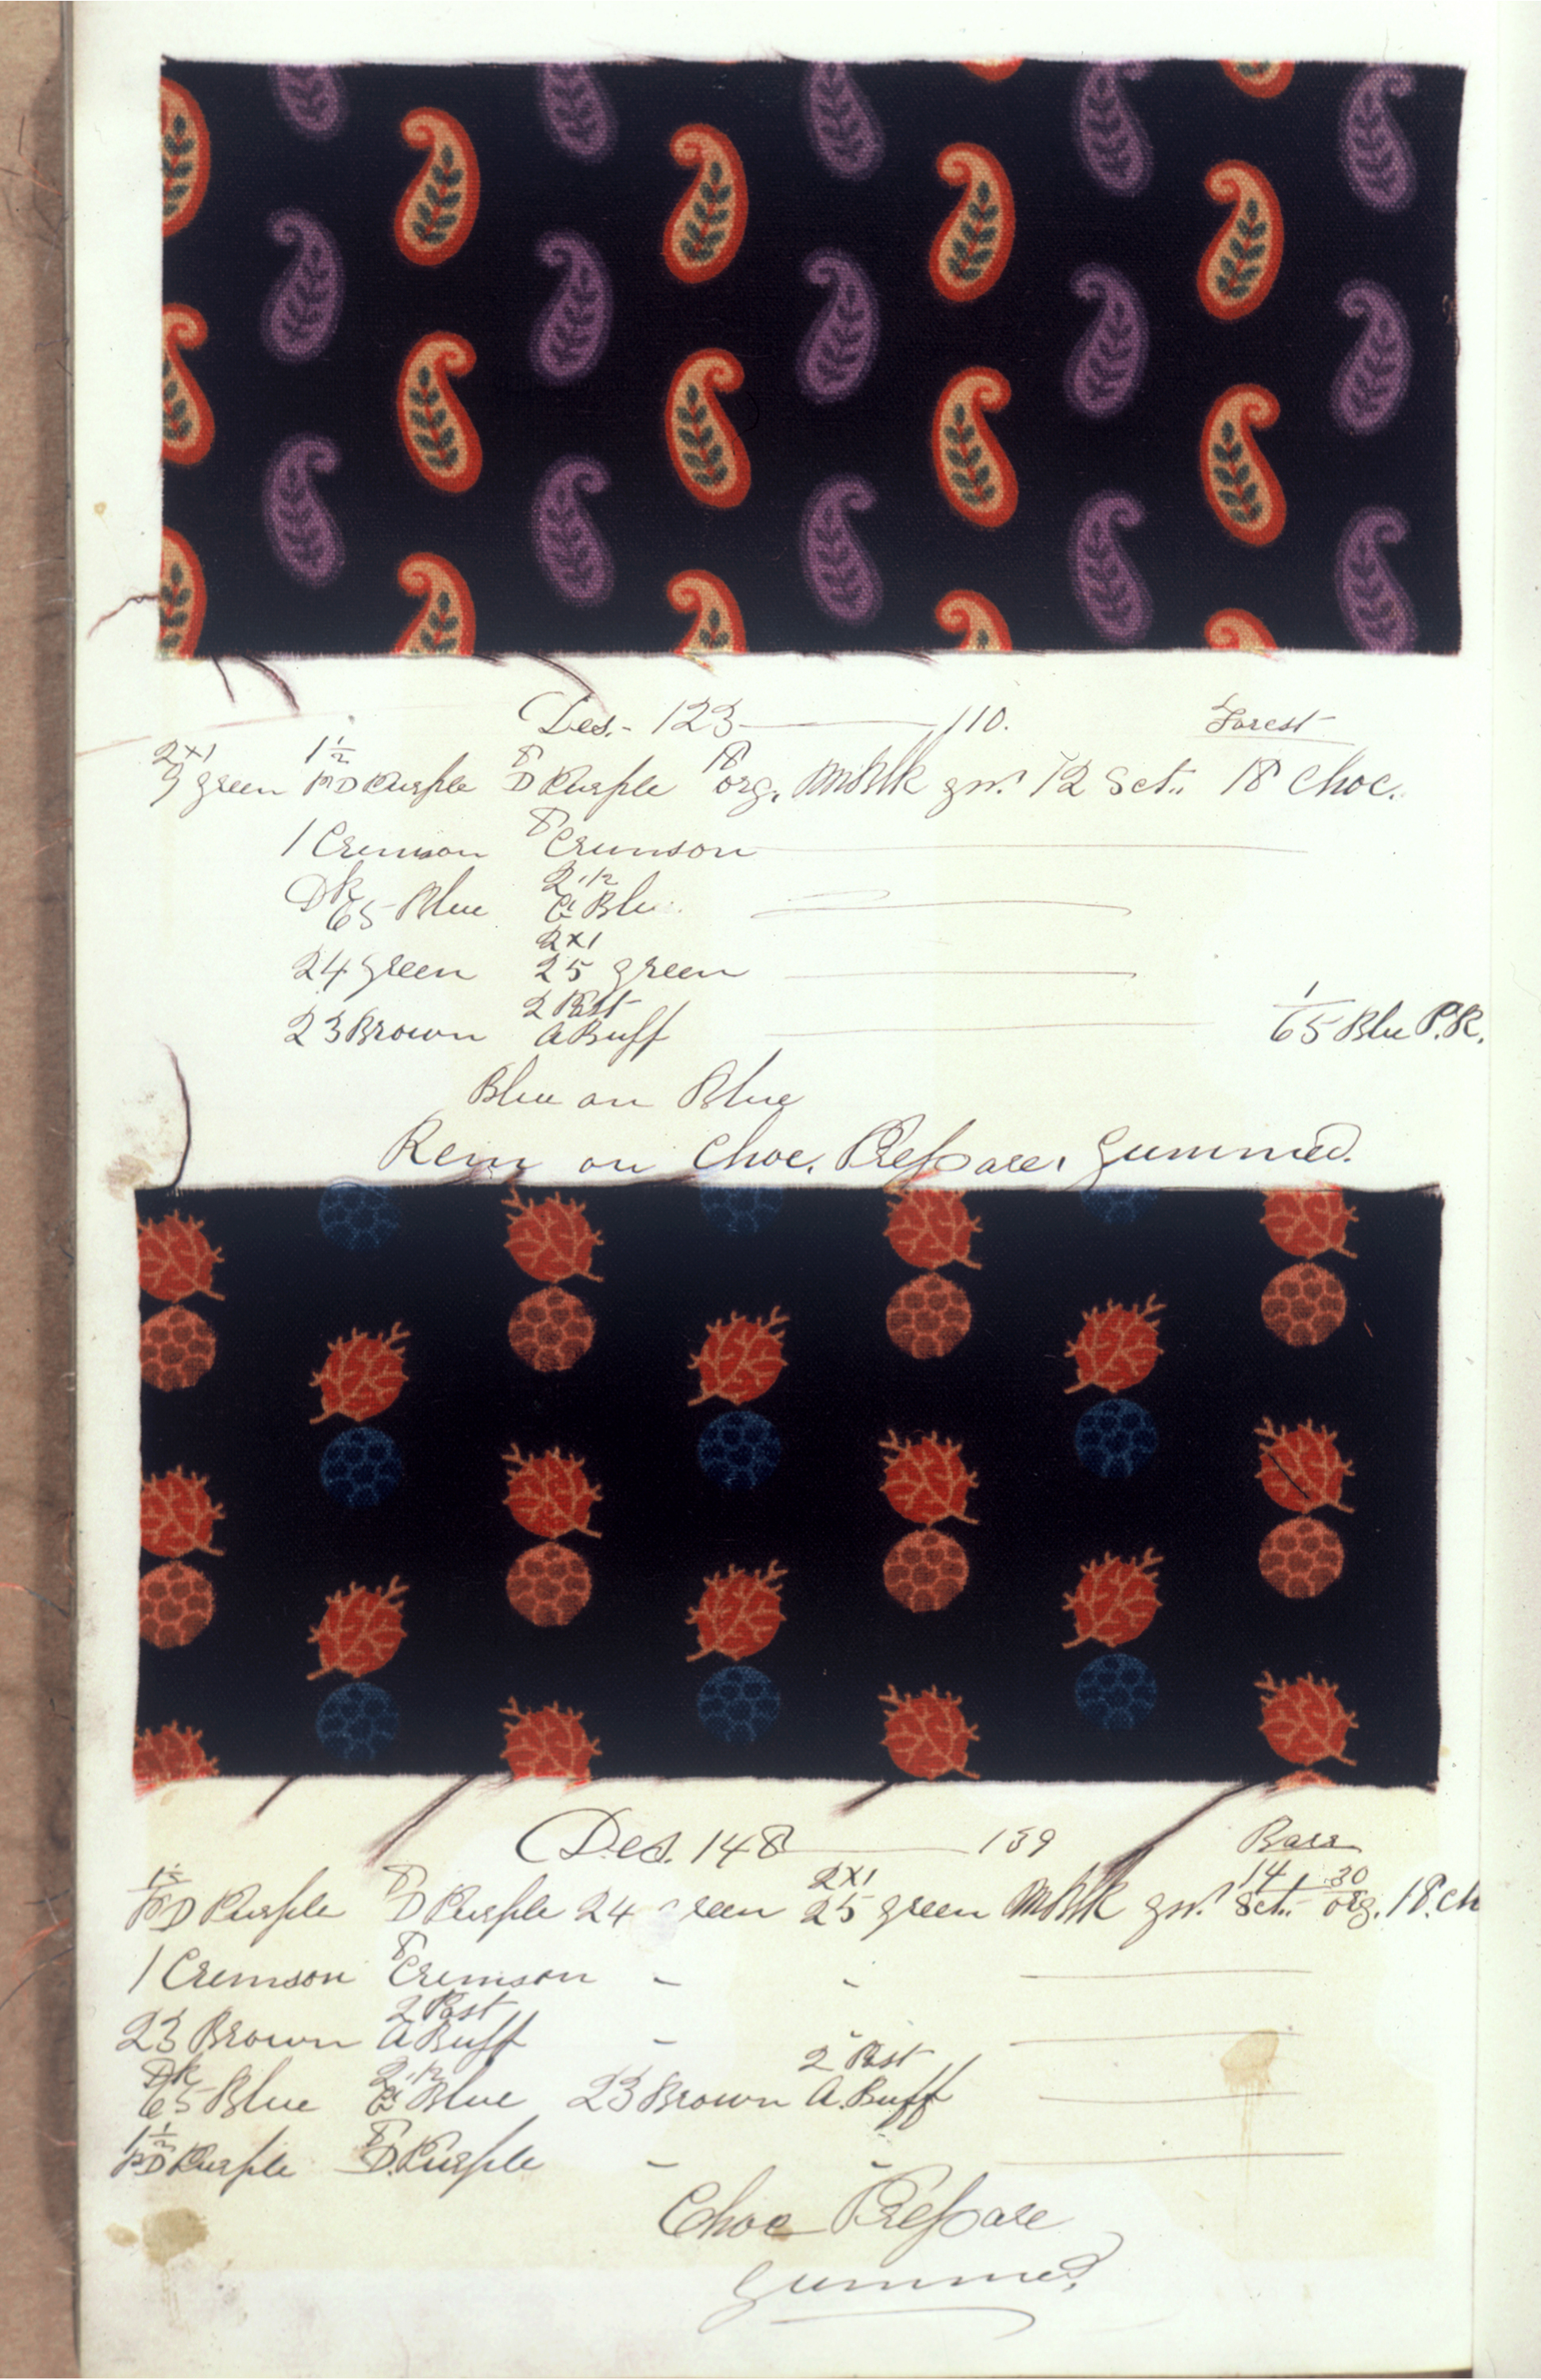 Des. 123 — 110. Forest
2x1 1½ 8 18
9 green PD Purple D Purple org. gn. 12 Sct. 18 Choc.
1 Crimson 8 Crimson
Dk 65 Blue 2.12 Blue
24 green 2x1 25 green
23 Brown 2 Past A Buff 1/65 Blue P.R.
Blue on Blue
Rem on Choc. Prepare. gummed.
Des. 148 — 159
1½ 8 2x1 14 30
PD Purple D Purple 24 green 25 green gn. Sct. org. 18. ch
1 Crimson 8 Crimson - -
23 Brown 2 Past A Buff -
Dk 65 Blue 2.12 Blue 23 Brown 2 Past A. Buff
1½ PD Purple 8 D. Purple - -
Choc Prepare
gummed